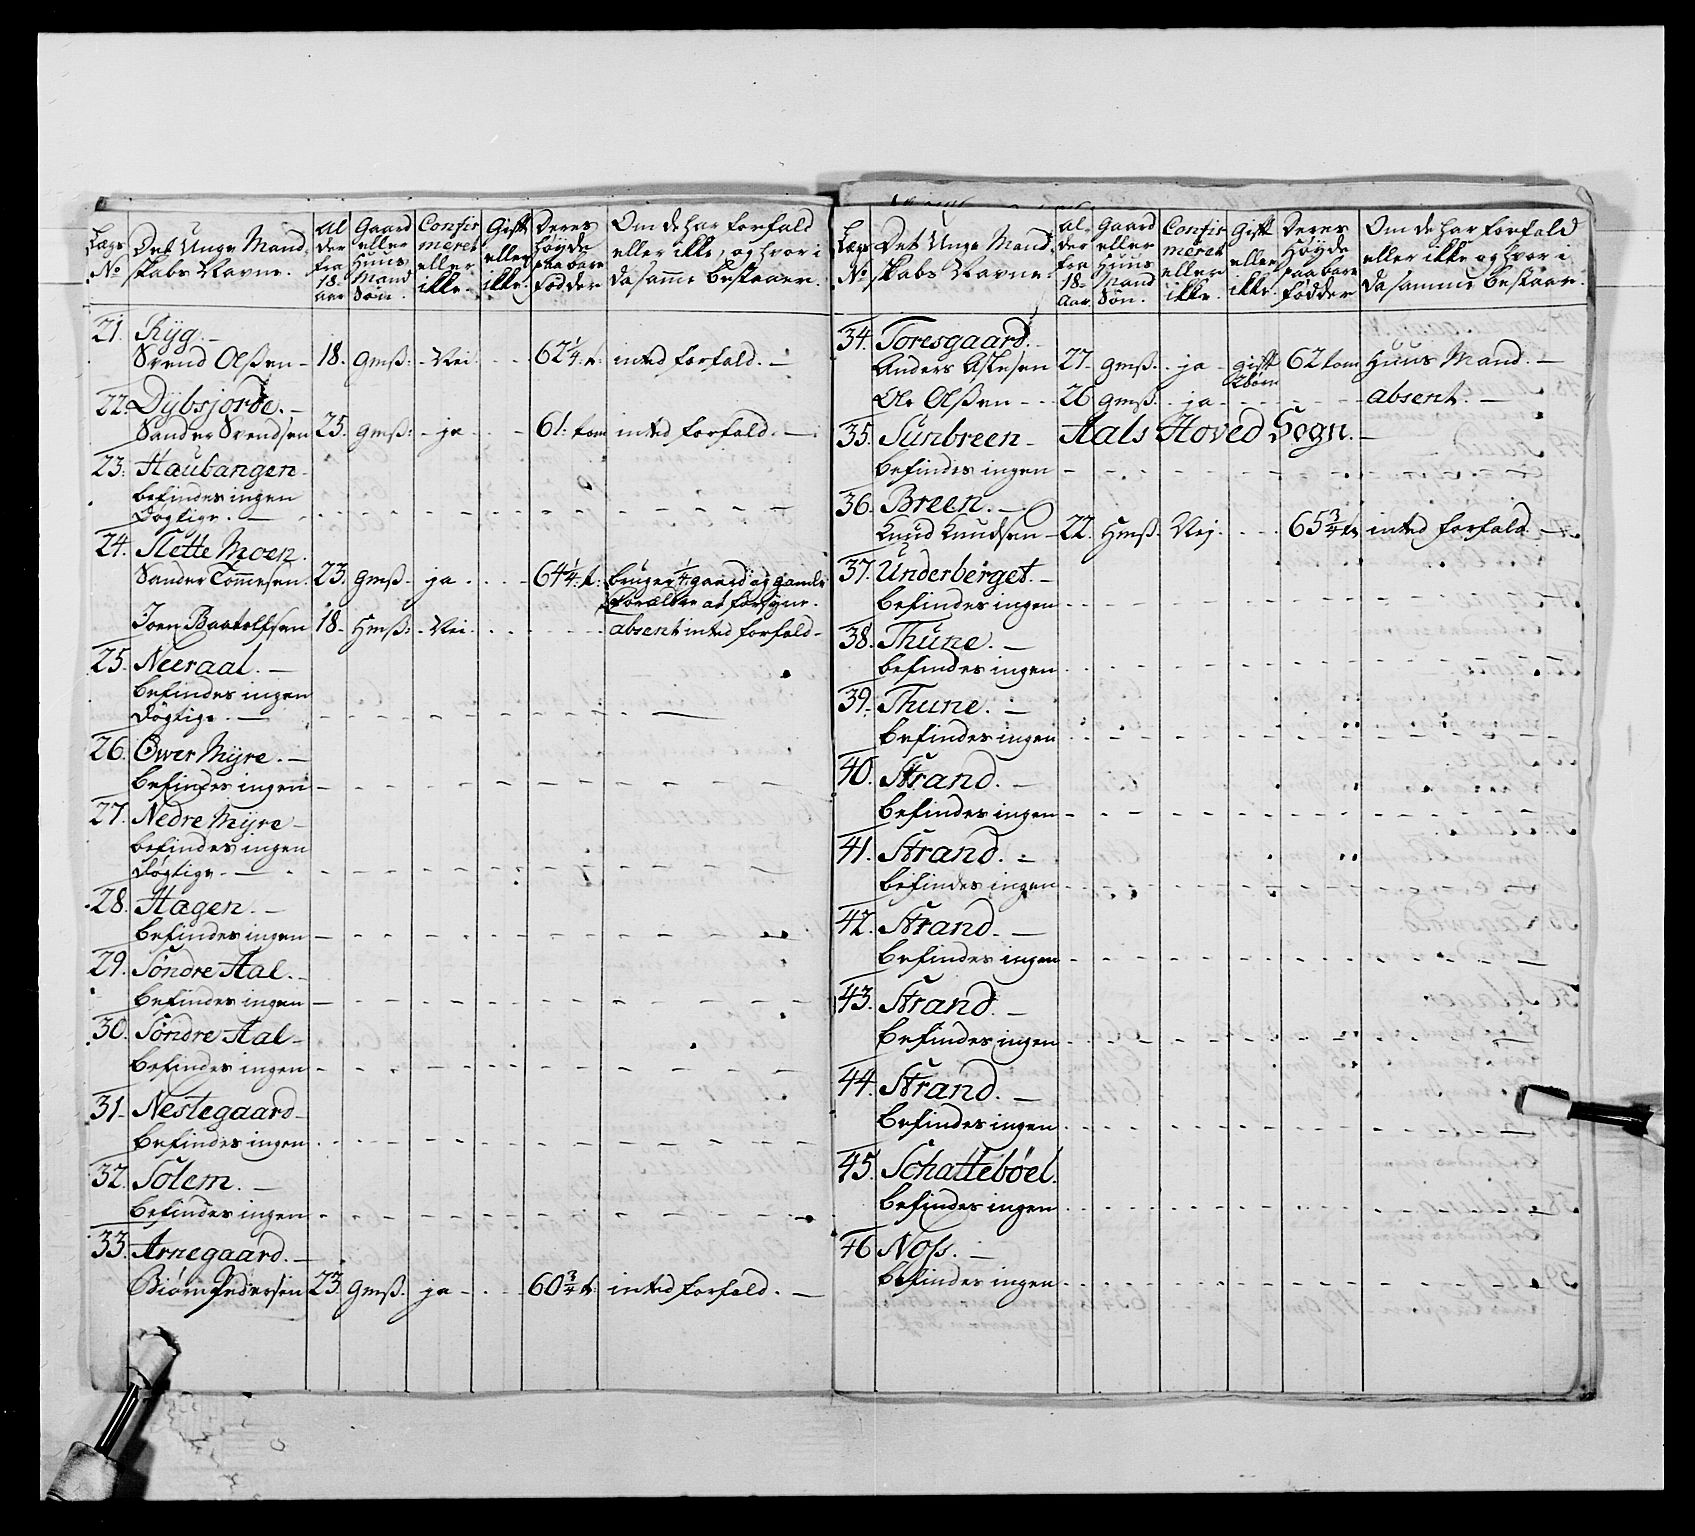 Lægs No | Det Unge Mandskabs Navne. | Alder fra 18. aar | Gaard eller Huus Mand Søn. | Confirmeret eller ikke. | Gift eller ikke. | Deres Høyde paa bare Fødder | Om de har forfald eller ikke, og hvor i da samme bestaaer.
21. Ryg. –
Svend Olßen – 18. gmß: – Nei. – – 62 1/4. t. inted forfald. –
22. Dybsjorde. –
Sander Svendsen 25. gmß: – ja – – 61. tom inted forfald. –
23. Haubangen –
befindes ingen
Døgtige. –
24. Slette Moen.
Sander Tommesen. 23. gmß. – ja. – – 64 1/4. t. bruger 1/4 gaard og gamle
Forældre at forsyne.
Joen Baatolfsen 18. Hmß: – Nei. – – absent inted forfald –
25. Neeraal. –
befindes ingen
Døgtige. –
26. Ower Myre. –
befindes ingen –
27. Nedre Myre –
befindes ingen
Døgtige. –
28. Hagen. –
befindes ingen –
29. Søndre Aal. –
befindes ingen –
30. Søndre Aal –
befindes ingen –
31. Nestegaard –
befindes ingen –
32. Solem. –
befindes ingen –
33. Arnegaard. –
Biørn Pedersen 23. gmß. ja – – 60 3/4 t: inted forfald. –
Lægs No | Det Unge Mandskabs Navne. | Alder fra 18. Aar. | Gaard eller Huus Mand Søn. | Confirmeret eller ikke. | Gift eller ikke. | Deres Høyde paa bare Fødder | Om de har forfald eller ikke og hvor i da samme bestaar.
34. Toresgaard. –
Anders Aslesen 27. gmß. – ja – gift 62 tom Huus Mand. –
2 børn
Ole Olßen – – 26 gmß. – ja – – – absent. –
35. Sunbreen – Aals Hoved Sogn. –
befindes ingen –
36. Breen. –
Knud Knudsen – 22. Hmß. Nej. – – 65 3/4 t. inted forfald. –
37. Underberget. –
befindes ingen –
38. Thune. –
befindes ingen –
39. Thune. –
befindes ingen –
40. Strand. –
befindes ingen –
41. Strand. –
befindes ingen –
42. Strand. –
befindes ingen –
43. Strand. –
befindes ingen –
44. Strand. –
befindes ingen –
45. Schattebøel.
befindes ingen –
46 Noss. –
befindes ingen –